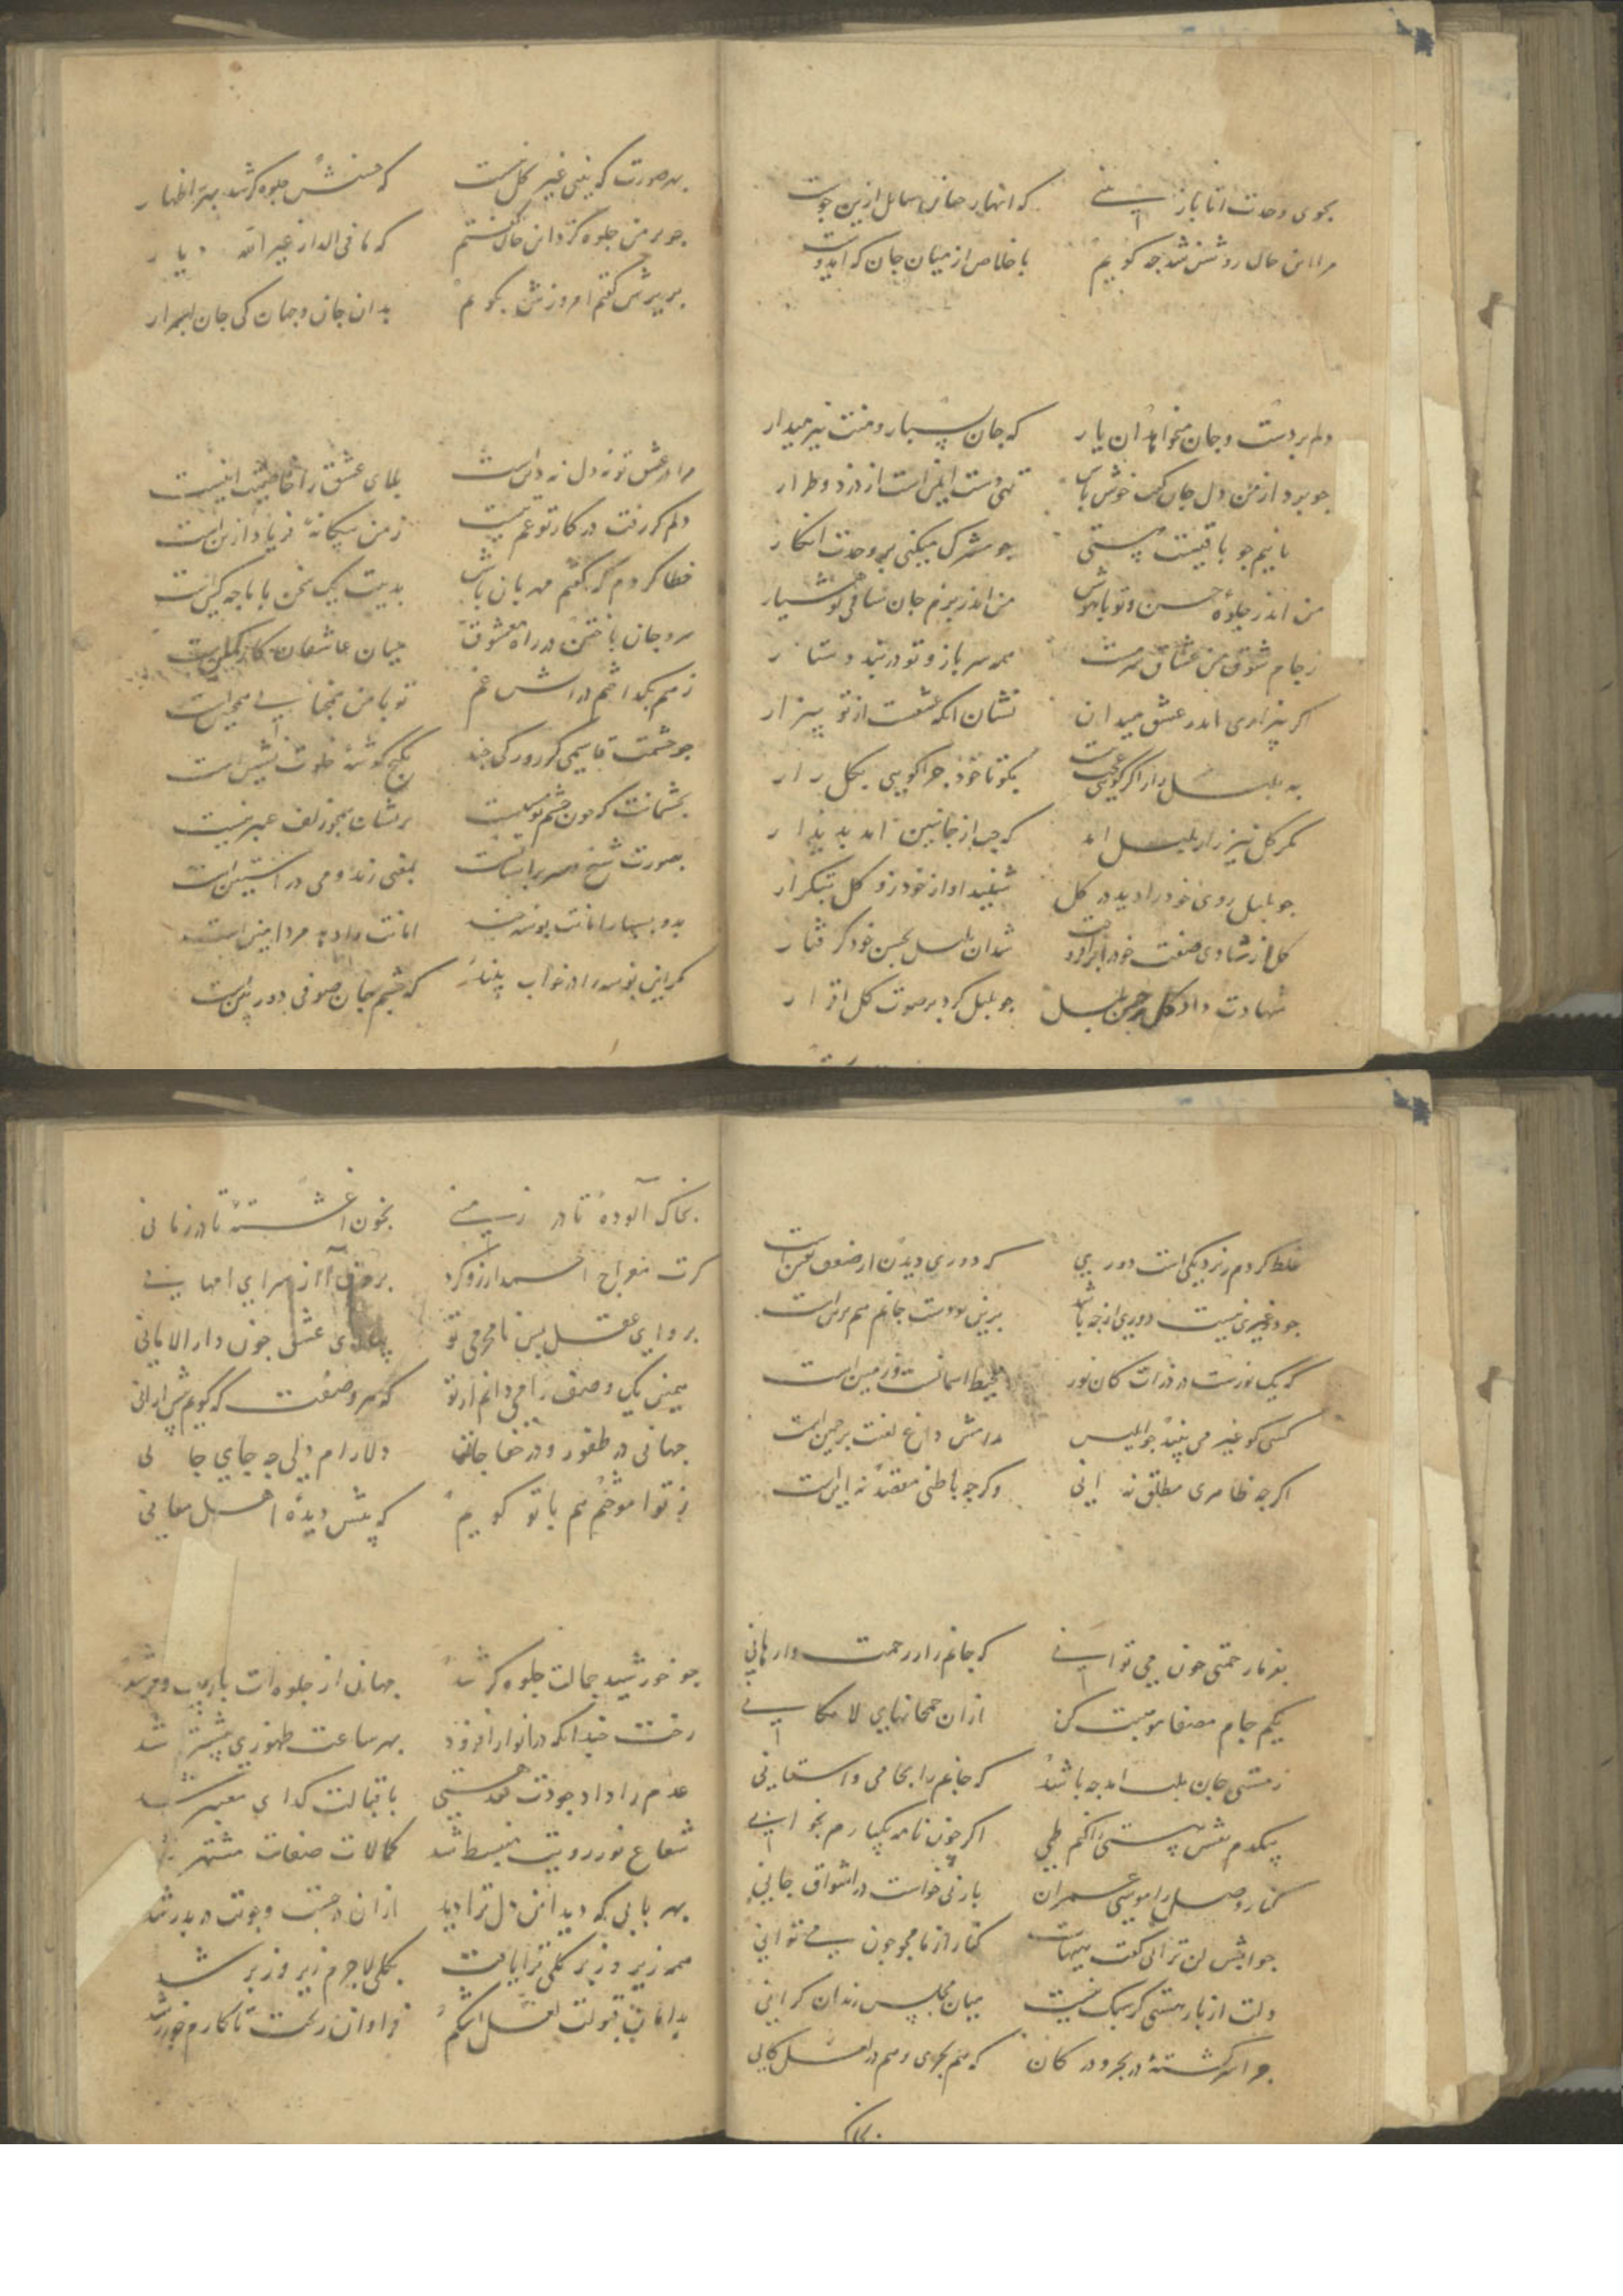 بجوی وحدت انا باز
که انهار جهان سایل ازین جوست
مرا این حال روشن شد چه کویم
با خلاص از میان جان که ایدوست
دلم بردست و جان میخواهد آن یار
که جان بسپار و منت نیز میدار
چو برد از من دل جان کفت خوش باش
تهی دست ایمن است از دزد و طرار
چو مشرک میکنی بر وحدت انکار
من اندر جلوه حسن و تو باهوش
من اندر بزم جان ساقی تو هشیار
ز جام شوق من عشاق سرمست
همه سرباز و تو در بند دستار
اگر بیزاری اندر عشق میدان
نشان انکه عشقست از تو بیزار
به بلبل راز اگر کویی عجب نیست
بگو تا خود چرا کویی بگل راز
مگر گل نیز زار بلبل امد
که حب از جانبین امد پدیدار
چو بلبل روی خود را دید در گل
شنید اواز خود زو گل بتکرار
گل از شادی صفت خود برافروخت
شد ان بلبل بحسن خود گرفتار
شهادت داد گل بر حسن بلبل
چو بلبل کرد بر صوت گل اقرار
بهر صورت که بینی غیر گل نیست
که حسنش جلوه گر شد بهر اظهار
چو بر من جلوه کرد این حال گفتم
که ما فی الدار غیر الله دیار
به پیرش گفتم امروزش بگویم
بدان جان و جهان کی جان اسرار
مرا در عشق تو نه دل نه دین است
بلای عشق را خاصیت اینست
دلم گر رفت در کار تو غم نیست
ز من بیگانه فریاد ازین است
خطا کردم گر گفتم مهربان باش
بدینت یک سخن با ما چه کین است
سر و جان باختن در راه معشوق
میان عاشقان کار کمین است
ز غم بگداختم در اتش غم
تو با من همچنانی همچنین است
چو چشمت قاسمی گر روز کی چند
بکنج گوشه خلوت نشین است
بچشمانت که چون چشم تو نیست
پریشان همچو زلف عنبرینست
بصورت شیخ
بمعنی رند و می در آستین است
بدو بسپار امانت بوسه چند
امانت را دهد مرد امین است
مگر این بوسه را در خواب بیند
که چشم جان صوفی دوربین است
غلط کردم ز نزدیکی است دوری
که دوری دیدن از ضعف یقین است
چو غیری نیست دوری از چه باشد
برین دوست جانم هم برین است
که یک نورست در ذرات کان نور
محیط اسمانست و زمین است
کسی کو غیر می بیند چو ابلیس
مدامش داغ لعنت بر جبین است
اگر چه ظاهری مطلق نه انی
وگر چه باطنی مقید نه این است
بفرما رحمتی چون می توانی
که جانم را ز زحمت وارهانی
بیکم جام مصفا موهبت کن
ازان خمخانهای لامکانی
ز مستی جان بلب امد چه باشد
که جانم را بجامی واستانی
بیکدم نقش هستی را کنم طی
اگر چون نامه یکبارم بخوانی
کنار وصل را موسی عمران
بارنی خواست در اشواق جانی
جوابش لن ترانی گفت هیهات
کنار از ما مجو چون می توانی
دلت از بار هستی گر سبک نیست
میان مجلس رندان گرانی
چرا سرگشته در بحر و در کان
که هم بحری و هم در لعل کانی
بخاک
بخاک آلوده تا در زمینی
بخون آغشته تا در زمانی
گرت معراج احمد ارزو کرد
برون آ از سرای امهانی
برو ای عقل بس نامحرمی تو
بیا ای عشق چون دارالامانی
همین یک وصف را می دانم از تو
که هر وصفت که گویم بیش ازانی
جهانی در ظهور و در خفا جان
دلارام دلی چه جای جانی
ز تو آموختم هم با تو گویم
که پیش دیده اهل معانی
چو خورشید جمالت جلوه گر شد
جهان از جلوه ات با زیب و فر شد
رخت چندانکه در انوار افزود
بهر ساعت ظهوری بیشتر شد
عدم را داد جودت نقد هستی
باقبالت گدایی معتبر شد
شعاع نور رویت منبسط شد
کمالات صفاتت مشتهر شد
بهر بابی که دید این دل ترا دید
ازان در جست و جویت دربدر شد
همه زیر و زبر کلی ترا یافت
بکلی لاجرم زیر و زبر شد
بدامان قبولت لعل اشکم
فراوان ریخت تا کارم چو زر شد